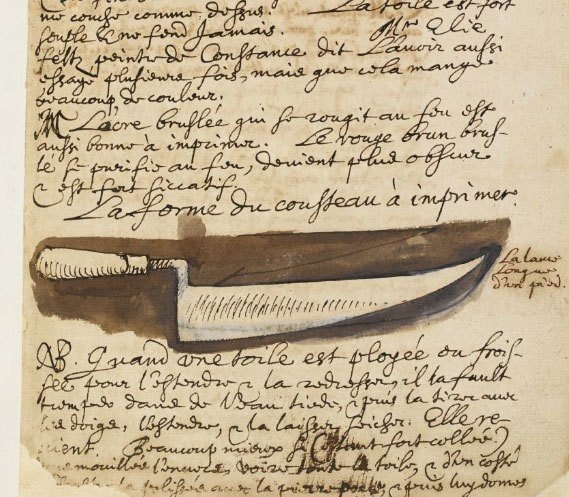 me couche comme dessus. La toile est fort
souple & ne fend jamais. Mr Elie
felt, peintre de Constance dit l'avoir aussi
essayé plusieurs fois, mais que cela mange
beaucoup de couleur.
L'ocre bruslée qui se rougit au feu est
aussi bonne à imprimer. Le rouge brun brus-
lé se purifie au feu, devient plus obscur
& est fort siccatif.
La forme du cousteau à imprimer.
La lame
longue
d'un pied.
NB. Quand une toile est ployée ou frois-
sée pour l'estendre & la redresser, il la fault
tremper dans de l'eau tiede, & puis la tirer avec
les doigs, l'estendre, & la laisser seicher. Elle re-
vient. Beaucoup mieux fort collée.
mouillée l'envers, voire toute la toile, & d'un costé
avec la pierre & puis luy donner